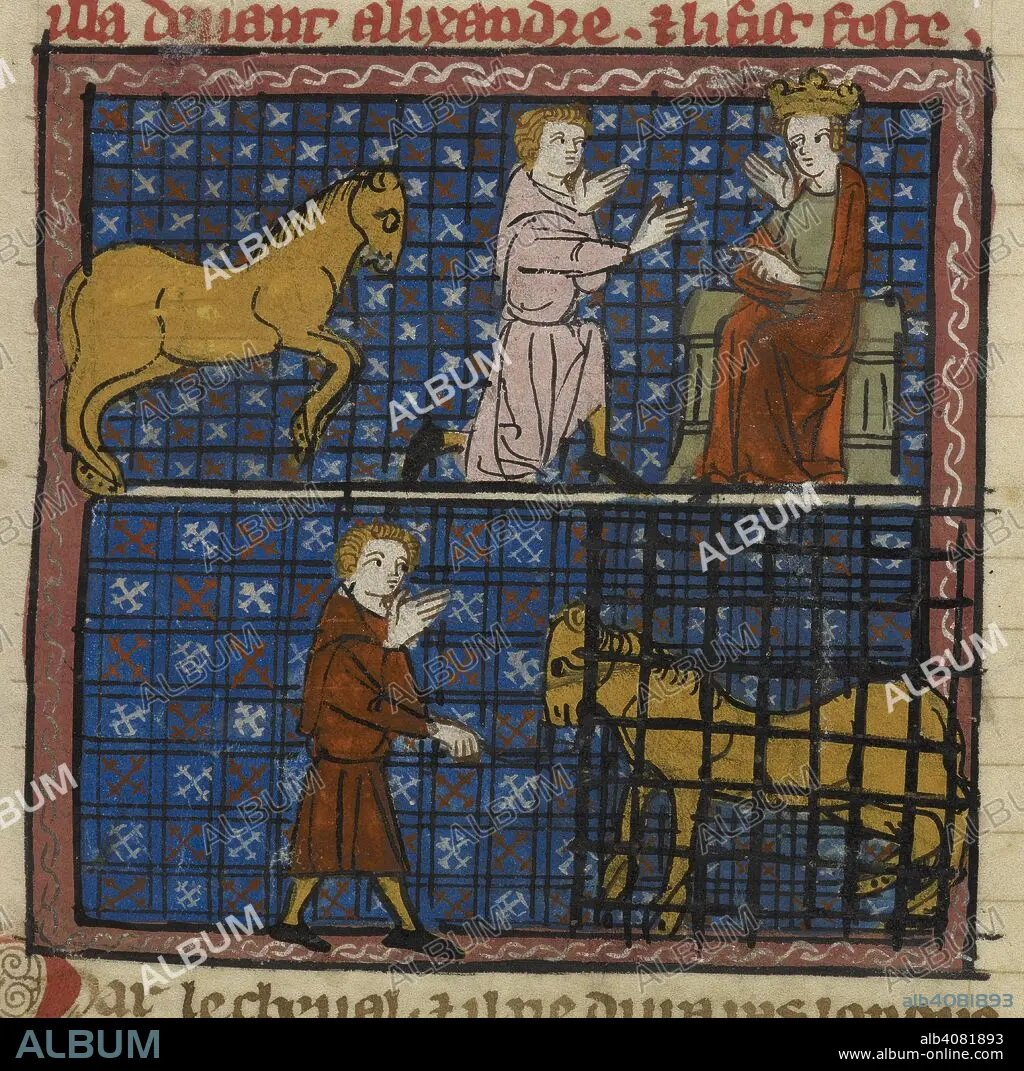 illa deuant alixandre. & li fist feste.
Par le cheual. & il ne
alb4081893
ALBUM
alb4081893
www.album-online.com